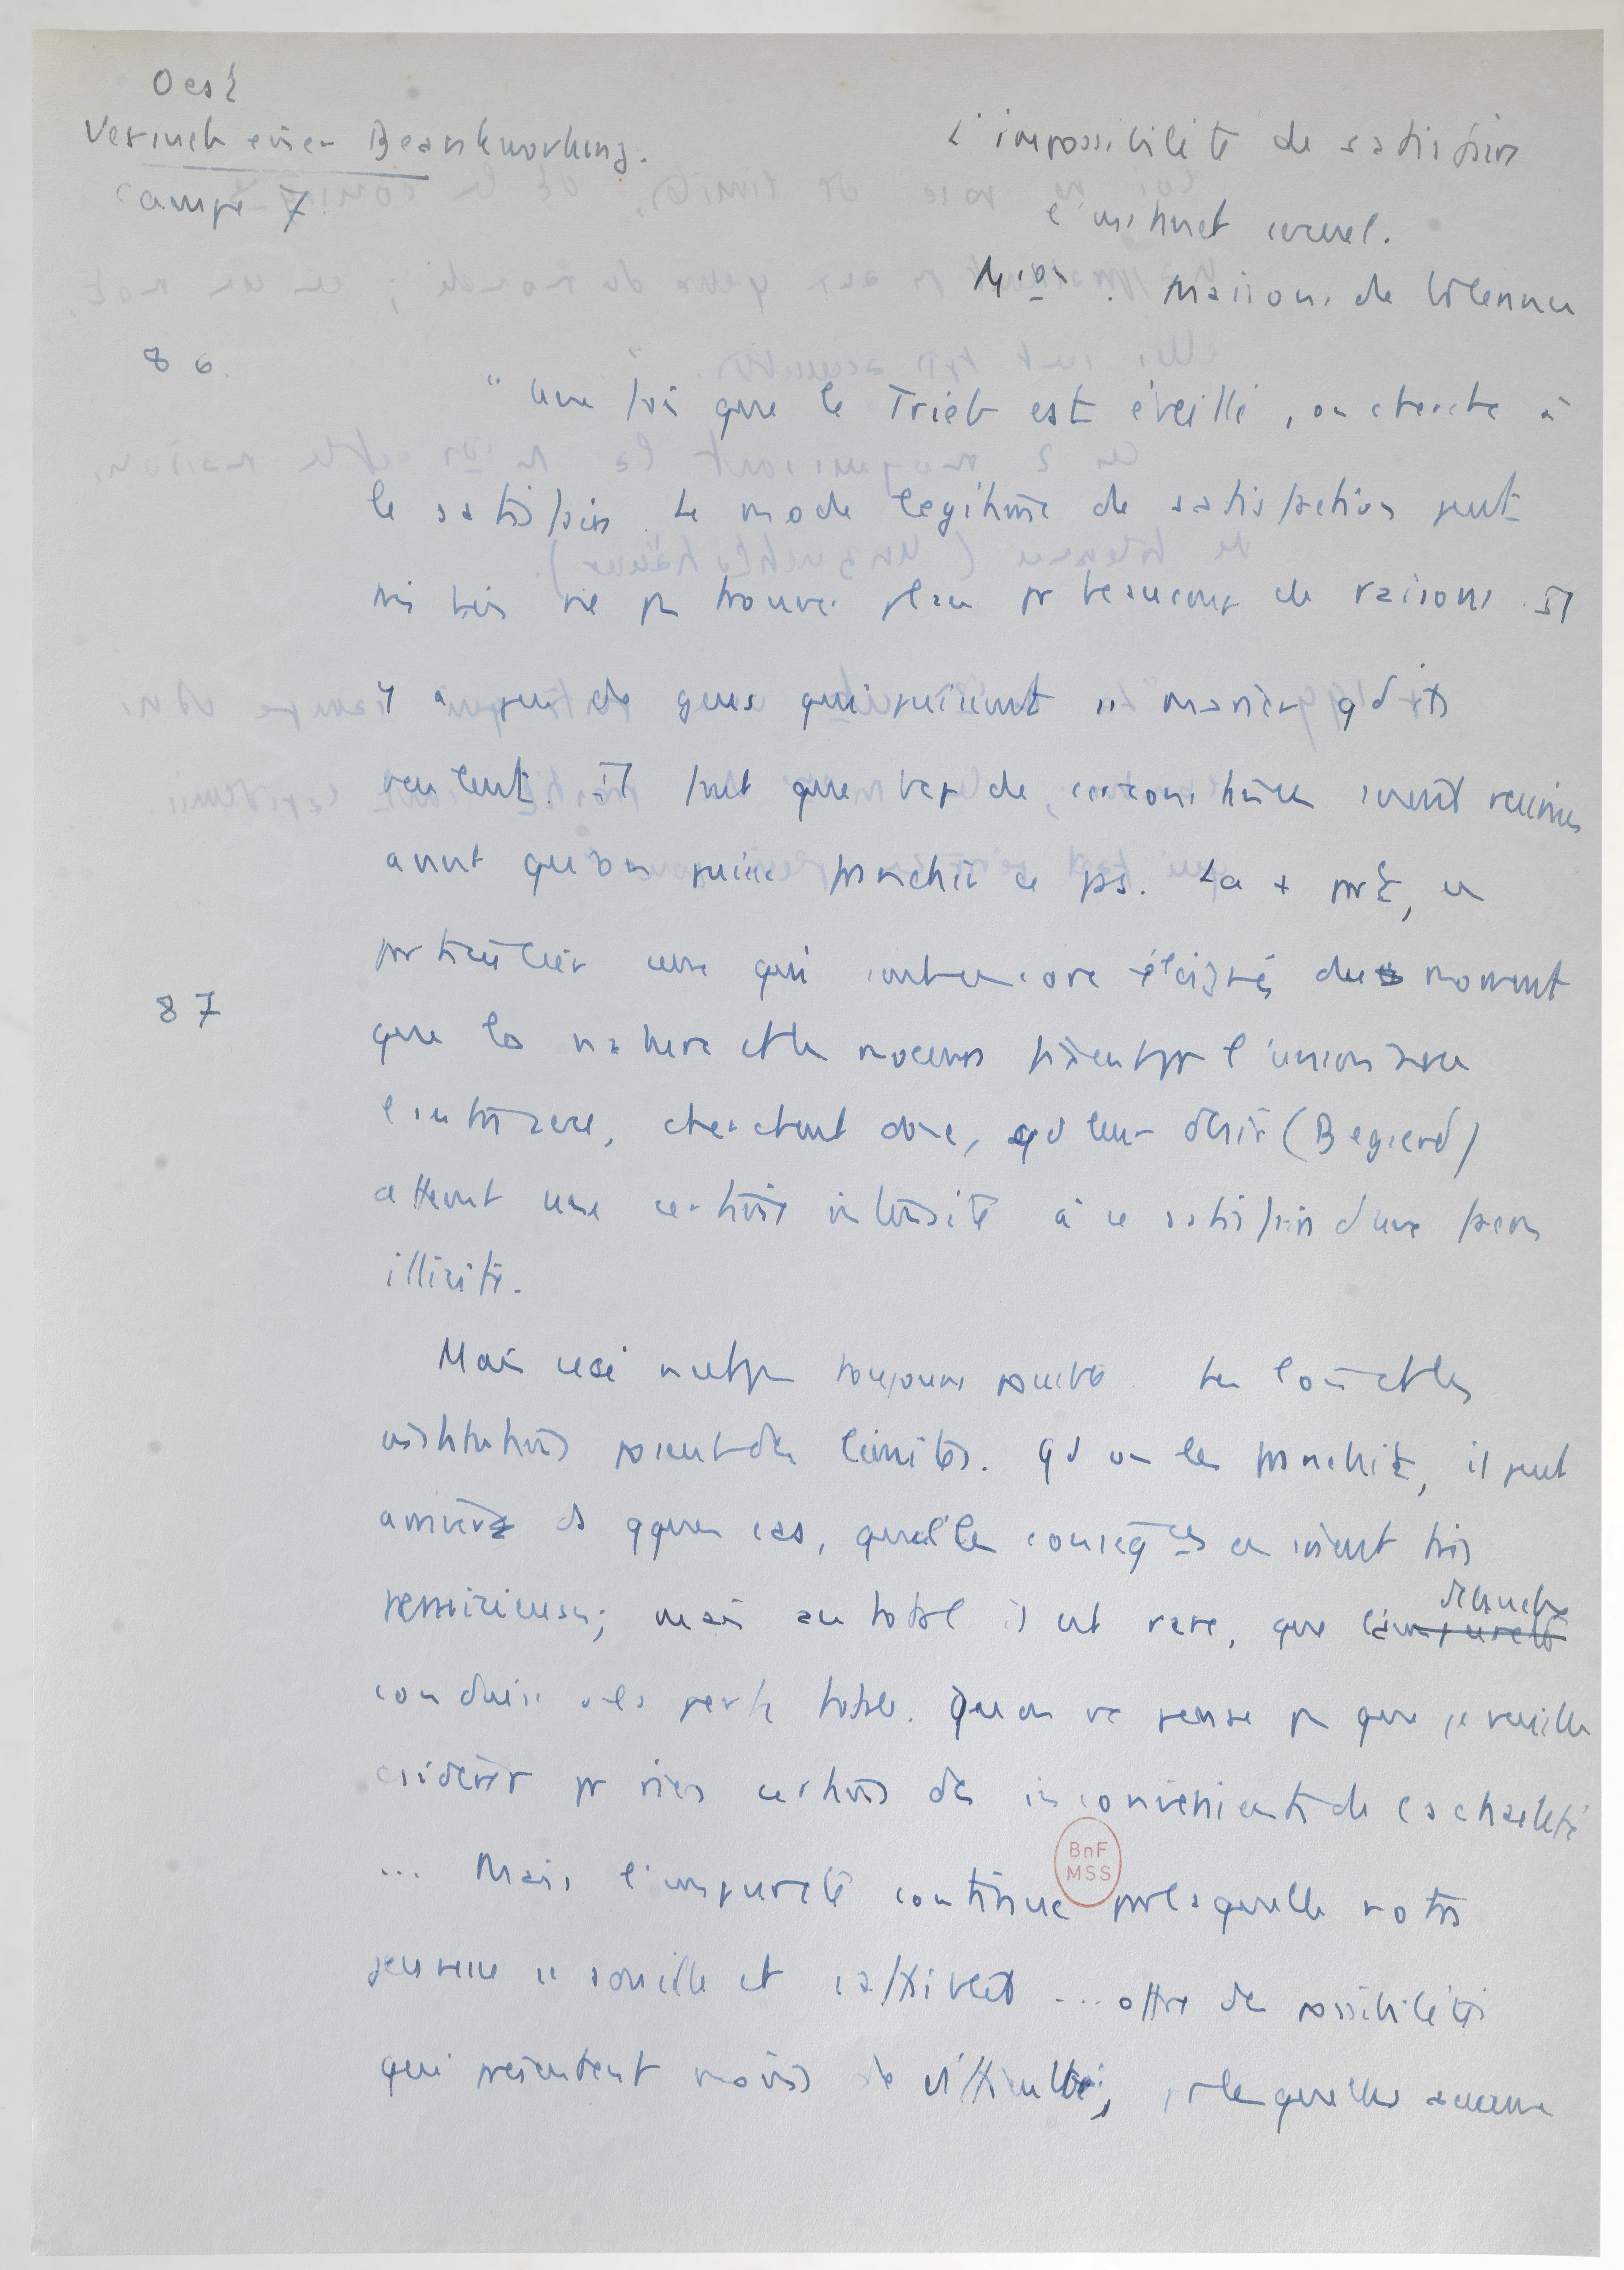 Oest
Versuch einer Beantwortung.
Campe 7
L'impossibilité de satisfaire
l'instinct sexuel.
M^on. Maisons de tolérance
86.
"Une fois que le Trieb est éveillé, on cherche à
le satisfaire. Le mode légitime de satisfaction peut
très bien ne pas trouver place pr beaucoup de raisons. Il
y a peu de gens qui puissent se marier qd ils
veulent. Il faut que bcp de circonstances soient réunies
avant qu'on puisse franchir ce pas. La + part, en
particulier ceux qui sont encore éloignés du moment
87
que la nature et les moeurs fixent pr l'union avec
l'autre sexe, cherchent donc, qd leur désir (Begierd)
atteint une certaine intensité à se satisfaire d'une façon
illicite.
Mais ceci n'est pas toujours possible. Les lois et les
institutions posent des limites. Qd on les franchit, il peut
arriver ds qques cas, que les conséq^ces en soient très
pernicieuses; mais au total il est rare, que l'impureté débauche
conduise à la perte totale. Qu'on ne pense pas que je veuille
csidérer pr rien certains des inconvénients de la chasteté
... Mais l'impureté continue par laquelle notre
jeunesse se souille et s'affaiblit ... offre des possibilités
qui présentent moins de difficultés, et lesquelles aucune
BnF
MSS